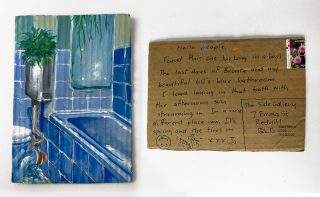 Hello people,
Found this one lurking in a box!
The last days of Bronte and my
beautiful 60's blue bathroom.
I loved laying in that bath with
the afternoon sun
streaming in. In a very
different place now. It's
spring and the fires in
xxx Jo
The Side Gallery
7 Emma St
Redhill
QLD